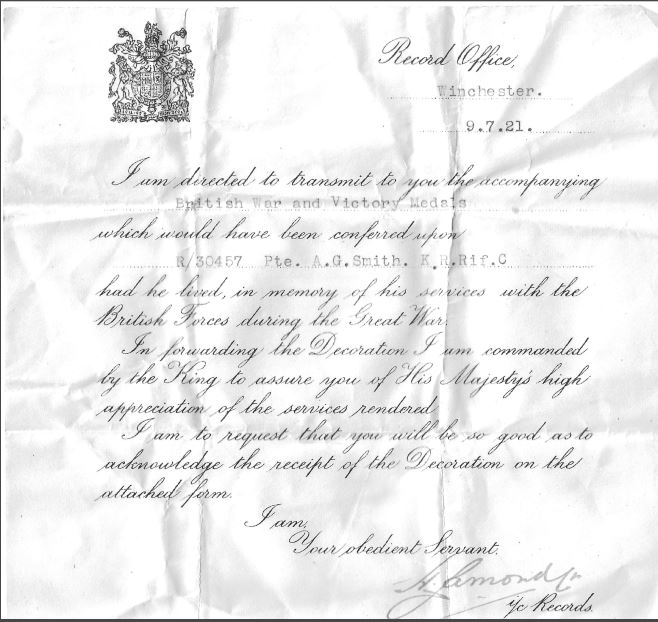 Record Office,
Winchester.
9.7.21.
I am directed to transmit to you the accompanying
British War and Victory Medals
which would have been conferred upon
R/30457 Pte. A.G.Smith. K.R.Rif.C
had he lived, in memory of his services with the
British Forces during the Great War.
In forwarding the Decoration I am commanded
by the King to assure you of His Majesty's high
appreciation of the services rendered
I am to request that you will be so good as to
acknowledge the receipt of the Decoration on the
attached form.
I am,
Your obedient Servant.
i/c Records.